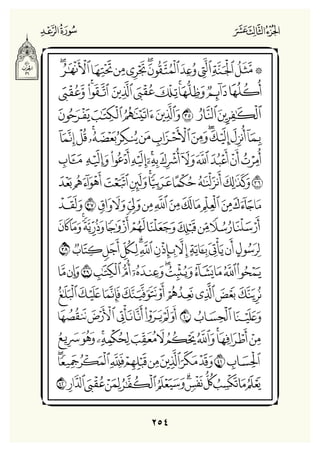 الجزء الثالث عشر سورة الرعد
۞ مثل الجنة التي وعد المتقون تجري من تحتها الأنهار
أكلها دائم وظلها تلك عقبى الذين اتقوا وعقبى
الكافرين النار ٣٥ والذين آتيناهم الكتاب يفرحون
بما أنزل إليك ومن الأحزاب من ينكر بعضه قل إنما
أمرت أن أعبد الله ولا أشرك به إليه أدعو وإليه مآب
٣٦ وكذلك أنزلناه حكما عربيا ولئن اتبعت أهواءهم بعد
ما جاءك من العلم ما لك من الله من ولي ولا واق ٣٧ ولقد
أرسلنا رسلا من قبلك وجعلنا لهم أزواجا وذرية وما كان
لرسول أن يأتي بآية إلا بإذن الله لكل أجل كتاب ٣٨
يمحو الله ما يشاء ويثبت وعنده أم الكتاب ٣٩ وإن ما
نرينك بعض الذي نعدهم أو نتوفينك فإنما عليك البلاغ
وعلينا الحساب ٤٠ أولم يروا أنا نأتي الأرض ننقصها
من أطرافها والله يحكم لا معقب لحكمه وهو سريع
الحساب ٤١ وقد مكر الذين من قبلهم فلله المكر جميعا
يعلم ما تكسب كل نفس وسيعلم الكفار لمن عقبى الدار ٤٢
٢٥٤